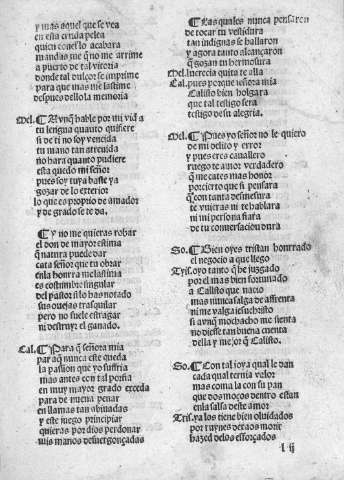 y mas aquel que se vea
en esta cruda pelea
quien con el lo acabara
mandas me q̄ no me arrime
a puerto de tal vitoria
donde tal dulçor se imprime
para que mas me lastime
despues dello la memoria
Mel. Aunq̄ hable por mi vida
tu lengua quanto quisiere
si de ti no soy vencida
tu mano tan atreuida
no hara quanto pudiere
esta quedo mi señor
pues soy tuya baste ya
gozar de lo exterior
lo que es proprio de amador
y de grado se te da.
Y no me quieras robar
el don de mayor estima
q̄ natura puede dar
cata señor que tu obrar
en la honrra me lastima
es costumbre singular
del pastor si lo has notado
sus ouejas trasquilar
pero no suele estragar
ni destruyr el ganado.
Cal. Para q̄ señora mia
par aq̄ nunca este queda
la passion que yo suffria
mas antes con tal porfia
en muy mayor grado exceda
para de nueua penar
en llamas tan abiuadas
y este juego principiar
quieras por dios perdonar
mis manos desuergonçadas
Las quales nunca pensaron
de tocar tu vestidura
tan indignas se hallaron
y agora tanto alcançaron
q̄ gozan tu hermosura
Mel. lucrecia quita te alla
Cal. pues porque señora mia
Calisto bien holgara
que tal testigo sera
testigo de su alegria.
Mel. Pues yo señor no le quiero
de mi delito y error
y pues eres cauallero
ruego te amor verdadero
q̄ me cates mas honor
por cierto que si pensara
q̄ con tanta desmesura
te vuieras ni te hablara
ni mi persona fiara
de tu conuersacion dura
So. Bien oyes tristan honrrado
el negocio a que llego
Tris. oyo tanto q̄ he juzgado
por el mas bien fortunado
a Calisto que nacio
mas nunca salga de affrenta
ni me valga jesu christo
si aunq̄ mochacho me sienta
no diesse tan buena cuenta
della y mejor q̄ Calisto.
So. Con tal joya qual le dan
cada qual ternia valor
mas coma la con su pan
que dos moços dentro estan
en la salsa deste amor
Tris. ya los tiene bien oluidados
por ruynes de aos morir
hazed de los esforçados
l ij